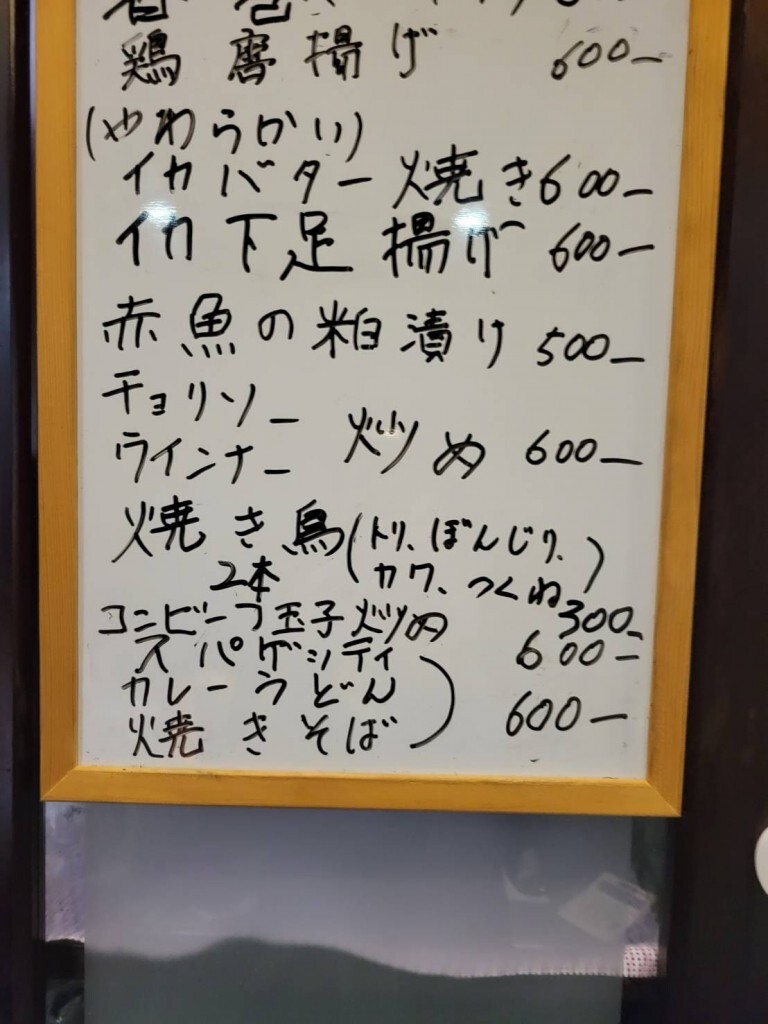 鶏唐揚げ 600-
(やわらかい)
イカバター焼き 600-
イカ下足揚げ 600-
赤魚の粕漬け 500-
チョリソー
ウインナー 炒め 600-
焼き鳥(トリ、ぼんじり、
2本 カワ、つくね) 300-
コンビーフ玉子炒め 600-
スパゲッティ
カレーうどん
焼きそば 600-